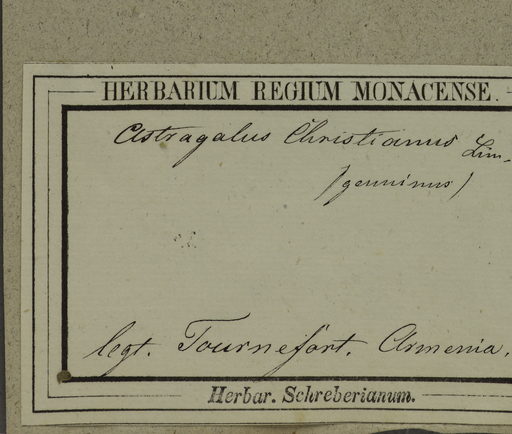 HERBARIUM REGIUM MONACENSE.
Astragalus Christianus Lin.
(genuinus)
legt. Tournefort. Armenia.
Herbar. Schreberianum.